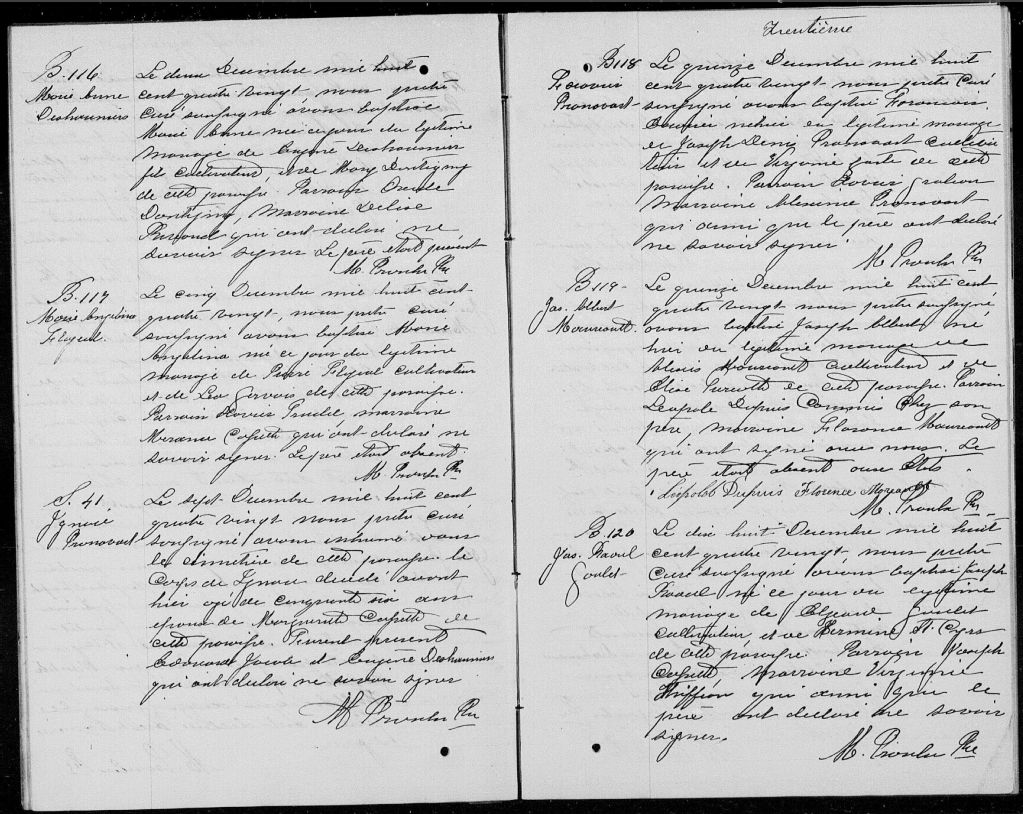 B. 116
Marie Anne
Deshauniers
Le deux Decembre mil huit
cent quatre vingt nous prêtre
curé soussigné avons baptisé
Marie Anne née ce jour du légitime
mariage de Eugène Deshauniers
fils cultivateur et de Mary Dontigny
de cette paroisse. Parrain
Dontigny, Marraine Delise
qui ont déclaré ne
savoir signer Le père etait présent
M. Proulx Ptre
B. 117
Marie Angelina
Le cinq Decembre mil huit cent
quatre vingt, nous prêtre curé
soussigné avons baptisé Marie
Angelina née ce jour du légitime
mariage de Pierre cultivateur
et de Lea Gervais de cette paroisse.
Parrain Xavier Trudel marraine
Cossette qui ont declaré ne
savoir signer. Le père etait absent.
M. Proulx Ptre
S. 41.
Ignace
Pronovost
Le sept Decembre mil huit cent
quatre vingt nous prêtre curé
soussigné avons inhumé dans
le cimetière de cette paroisse le
corps de Ignace décédé avant
hier agé de cinquante six ans
epoux de Marguerite Cossette de
cette paroisse. Furent présent
Edouard Jacob et Eugène Deshauniers
qui ont declaré ne savoir signer
M Proulx Ptre
Trentième
B 118
Pronovost
Le quinze Decembre mil huit
cent quatre vingt nous prêtre curé
soussigné avons baptisé
né hier du légitime mariage
de Joseph Denis Pronovost cultiva
teur et de Virginie de cette
paroisse. Parrain Xavier
Marraine Pronovost
qui ainsi que le père ont declaré
ne savoir signer
M. Proulx Ptre
B 119
Jos. Albert
Le quinze Decembre mil huit cent
quatre vingt nous prêtre soussigné
avons baptisé Joseph Albert né
hier du légitime mariage de
cultivateur et de
Elise de cette paroisse. Parrain
Leopold Dupuis Commis chez son
père, marraine Florence
qui ont signé avec nous. Le
père etait absent aux Etats.
Leopold Dupuis Florence
M. Proulx Ptre
B. 120
Jos. Raoul
Goulet
Le dix huit Decembre mil huit
cent quatre vingt nous prêtre
curé soussigné avons baptisé Joseph
Raoul né ce jour du légitime
mariage de Goulet
cultivateur et de Hermine St. Cyr
de cette paroisse. Parrain Joseph
Cossette Marraine Virginie
qui ainsi que le
père ont declaré ne savoir
signer.
M. Proulx Ptre